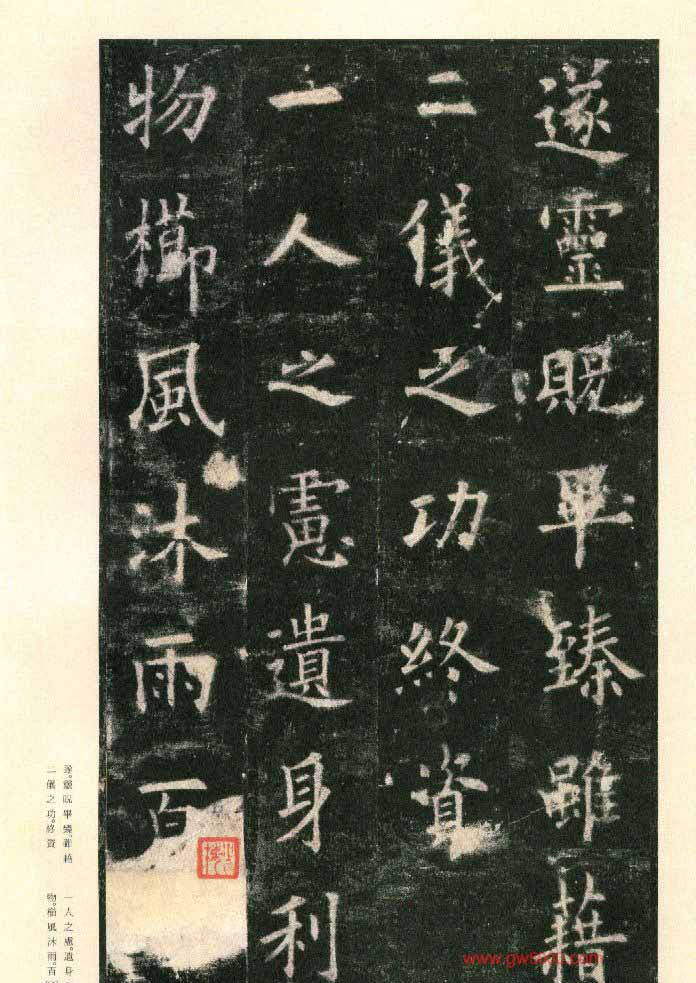 遂靈貺畢臻雖藉
二儀之功終資
一人之慮遺身利
物櫛風沐雨百
遂。靈貺畢臻。雖藉
二儀之功。終資
一人之慮。遺身
物。櫛風沐雨。百